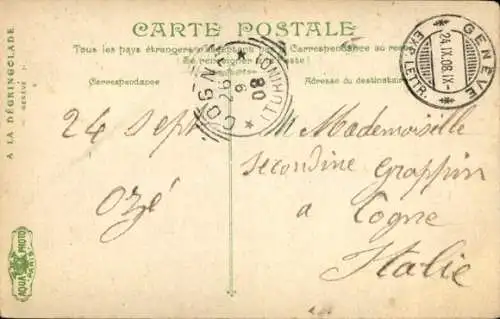 CARTE POSTALE
Tous les pays étrangers n'acceptent pas la Correspondance au recto
(Se renseigner à la Poste)
Correspondance
Adresse du destinataire
A LA DÉGRINGOLADE
GENÈVE
GENÈVE
24.IX.08.IX-
EXP. LETTR.
COGNE
TORINO
24 Sept
Ozé
M Mademoiselle
Secondine Grappin
a Cogne
Italie
AQUA PHOTO
PARIS